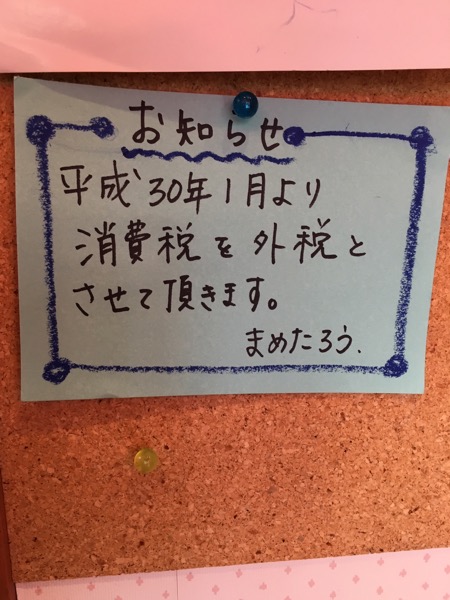 お知らせ
平成30年1月より
消費税を外税と
させて頂きます。
まめたろう.